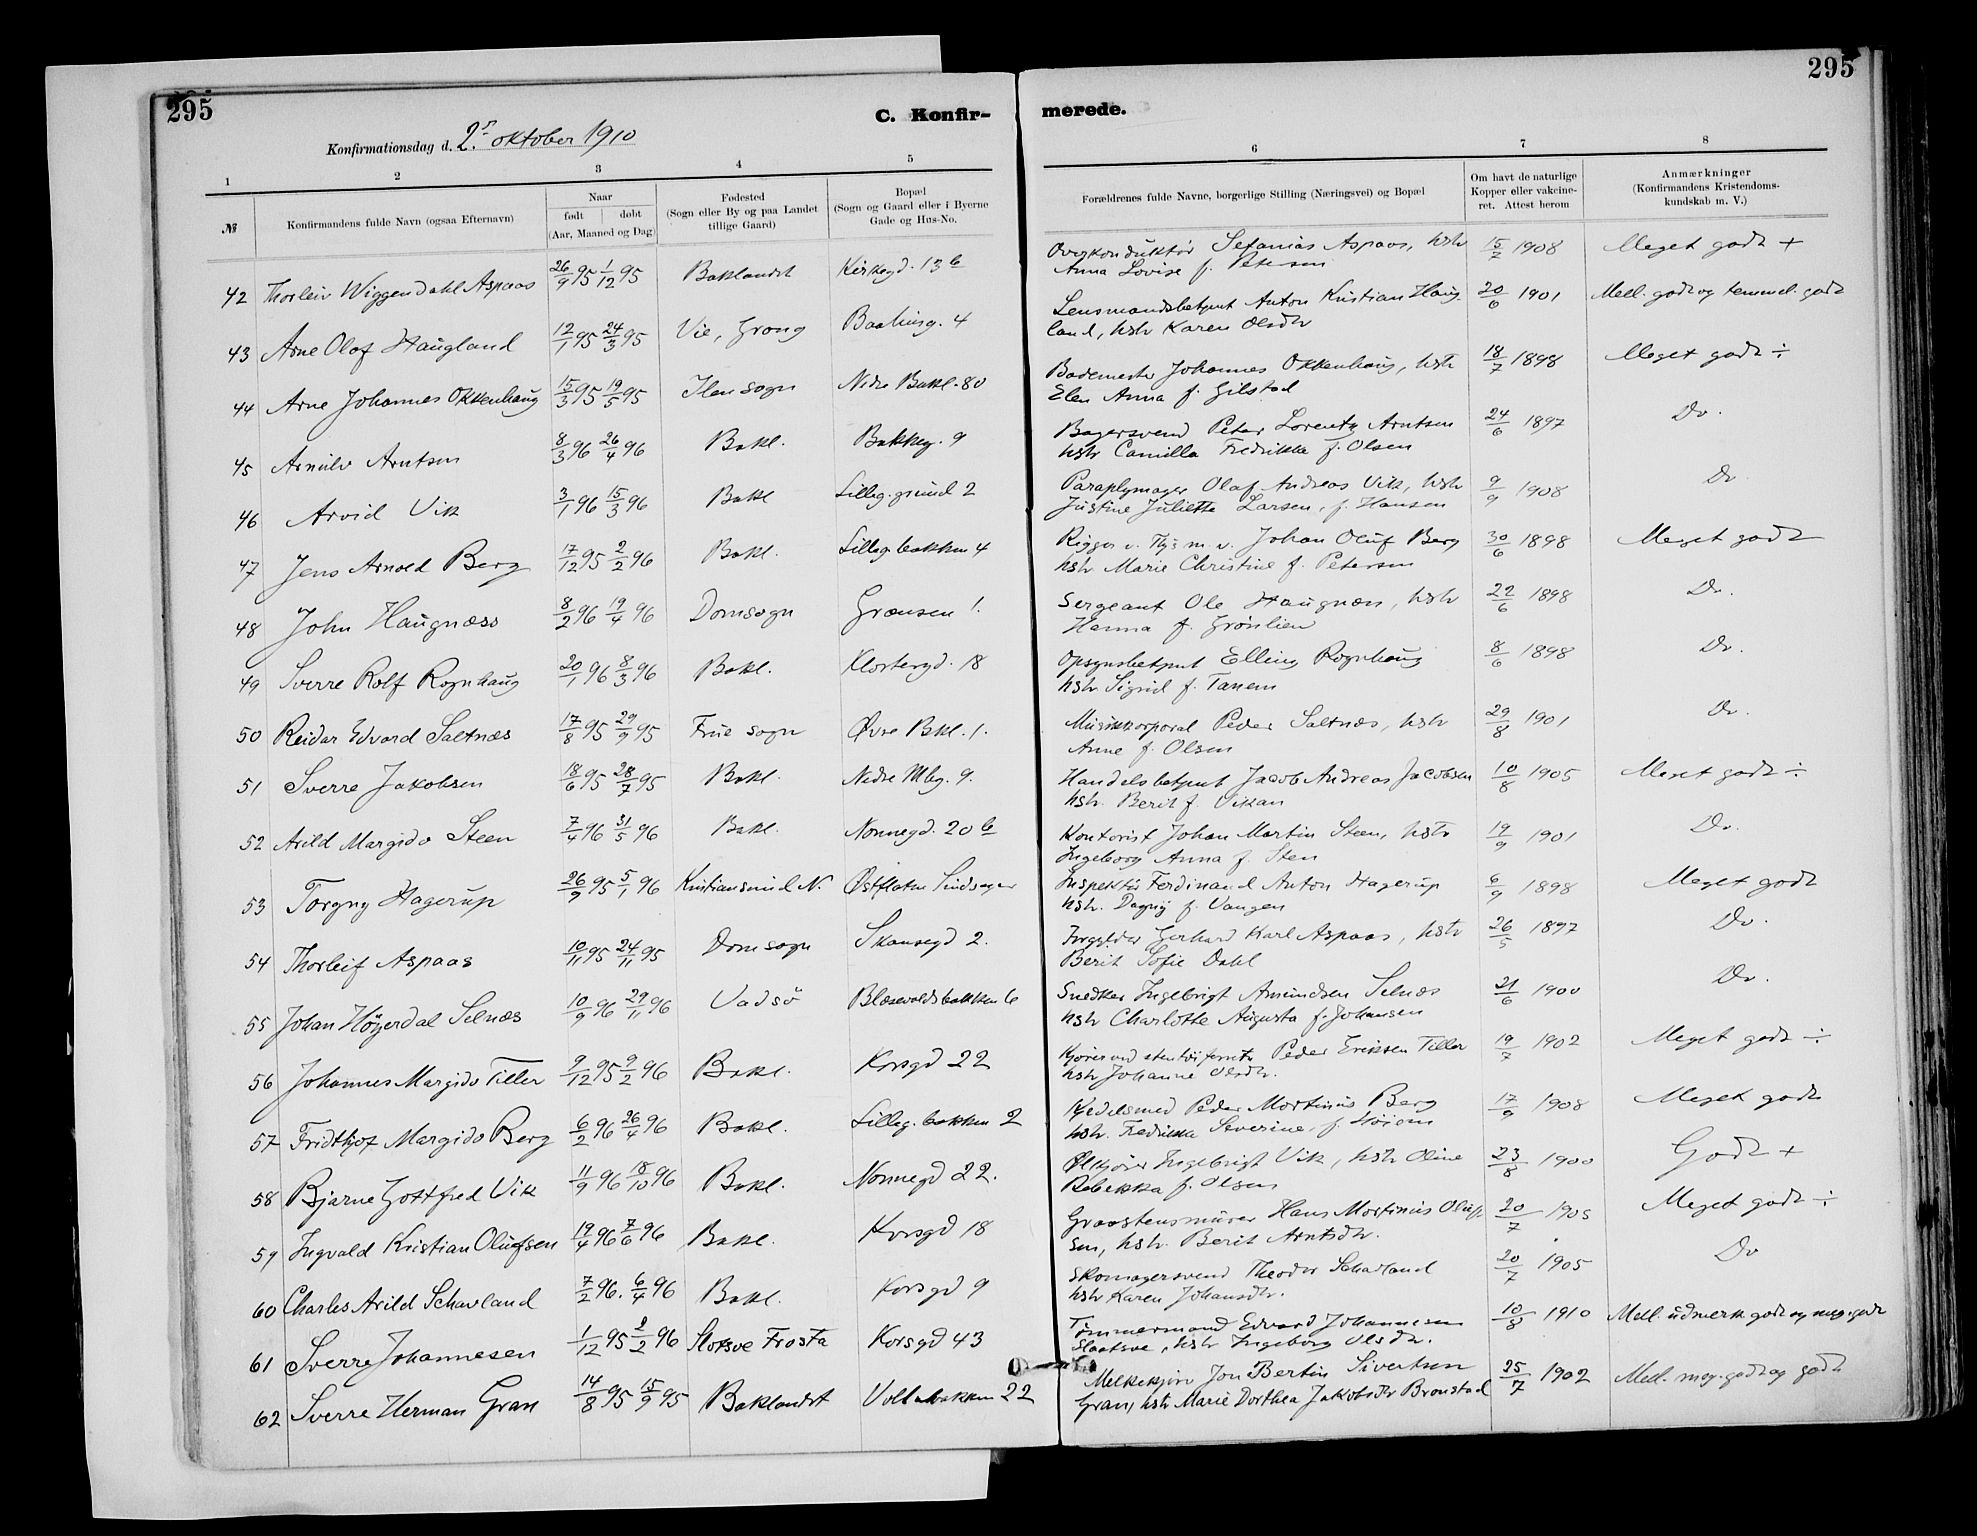 295
295
C. Konfir-
merede.
Konfirmationsdag d. 2. oktober 1910
1 2 3 4 5 6 7 8
№
Konfirmandens fulde Navn (ogsaa Efternavn)
Naar
født døbt
(Aar, Maaned og Dag)
Fødested
(Sogn eller By og paa Landet
tillige Gaard)
Bopæl
(Sogn og Gaard eller i Byerne
Gade og Hus-No.
Forældrenes fulde Navne, borgerlige Stilling (Næringsvei) og Bopæl
Om havt de naturlige
Kopper eller vakcine-
ret. Attest herom
Anmærkninger
(Konfirmandens Kristendoms-
kundskab m. V.)
42 Thorleiv Wiggen Dahl Aspaas 26/9 95 1/12 95 Baklandet Kirkegd. 13 b Overkonduktör Sefanias Aspaas, hstr 15/7 1908 Meget godt +
Anna Lovise f. Petersen
43 Arne Olaf Haugland 12/1 95 24/3 95 Vie, Grong 4 Lensmandsbetjent Anton Kristian Haug- 20/6 1901 Mell. godt og temmel. godt
land, hstr Karen Olsdtr
44 Arne Johannes Okkenhaug 15/3 95 19/5 95 Ilen sogn Nedre Bakl. 80 Bademester Johannes Okkenhaug, hstr 18/7 1898 Meget godt ÷
Elen Anna f. Gilstad
45 Arnulv Arntsen 8/3 96 26/4 96 Bakl. Bakkeg. 9 Bagersvend Peter Lorentz Arntsen 24/6 1897 Do.
hstr Camilla Fredrikke f. Olsen
46 Arvid Vik 3/1 96 15/3 96 Bakl Lilleg. grund 2 Paraplymager Olaf Andreas Vik, hstr 9/9 1908 Do.
Justine Juliette Larsen, f. Hansen
47 Jens Arnold Berg 17/12 95 2/2 96 Bakl. Lilleg. bakken 4 Rigger v. m. v. Johan Oluf Berg 30/6 1898 Meget godt
hstr Marie Christine f. Petersen
48 John Haugnæss 8/2 96 19/4 96 Domsogn Grænsen 1. Sergeant Ole Haugnæss, hstr 22/6 1898 Do.
Hanna f. Grönlien
49 Sverre Rolf Rognhaug 20/1 96 8/3 96 Bakl. Klostergd. 18 Opsynsbetjent Elling Rognhaug 8/6 1898 Do.
hstr Sigrid f. Tanem
50 Reidar Edvard Saltnæs 17/8 95 29/9 95 Frue sogn Øvre Bakl. 1. Musikkorporal Peder Saltnæs, hstr 29/8 1901 Do.
Anne f. Olsen
51 Sverre Jakobsen 18/6 95 28/7 95 Bakl. Nedre Mbg. 9. Handelsbetjent Jacob Andreas Jacobsen 10/8 1905 Meget godt ÷
hstr. Berit f. Vikan
52 Arild Margido Steen 7/4 96 31/5 96 Bakl. Nonnegd. 20 b Kontorist Johan Martin Steen, hstr 19/9 1901 Do.
Ingeborg Anna f. Sten
53 Torgny Hagerup 26/9 95 5/1 96 Kristiansund N. Østflaten Inspektör Ferdinand Anton Hagerup 6/9 1898 Meget godt
hstr. Dagny f. Vangen
54 Thorleif Aspaas 10/11 95 24/11 95 Domsogn Skansegd 2. Forgylder Gerhard Karl Aspaas, hstr 26/5 1897 Do.
Berit Sofie Dahl
55 Johan Höyerdal Selnæs 10/9 96 29/11 96 Vadsö Blæsevoldsbakken 6 Snedker Ingebrigt Amundsen Selnæs 21/6 1900 Do.
hstr Charlotte Augusta f. Johansen
56 Johannes Margido Tiller 9/12 95 9/2 96 Bakl. Korsgd 22 Peder Eriksen Tiller 19/7 1902 Meget godt ÷
hstr Johanne Olsdtr.
57 Fridthjof Margido Berg 6/2 96 26/4 96 Bakl. Lilleg. bakken 2 Kjedelsmed Peder Martinus Berg 17/9 1908 Meget godt
hstr. Fredrikke Severine, f.
58 Bjarne Gottfred Vik 11/9 96 18/10 96 Bakl. Nonnegd 22. Ølkjører Ingebrigt Vik, hstr Oline 23/8 1900 Godt +
Rebekka f. Olsen
59 Ingvald Kristian Olufsen 19/4 96 7/6 96 Bakl. Korsgd 18 Graastensmurer Hans Martinus Oluf- 20/7 1905 Meget godt ÷
sen, hstr. Berit Arntsdtr.
60 Charles Arild Schavland 7/2 96. 6/4 96 Bakl. Korsgd 9 Skomagersvend Theodor Schavland 20/7 1905 Do
hstr Karen Johansdtr.
61 Sverre Johannesen 1/12 95 2/2 96 Frosta Korsgd 43 Tömmermand Edvard Johannesen 10/8 1910 Mell. udmerk. godt og meg. godt
hstr Ingeborg Olsdtr.
62 Sverre Herman Gran 14/8 95 15/9 95 Baklandet Voldabakken 22 Melkekjörer Jon Bertin Sivertsen 25/7 1902 Mell. meg. godt og godt
Gran, hstr Marie Dorthea Jakobsdtr Bronstad